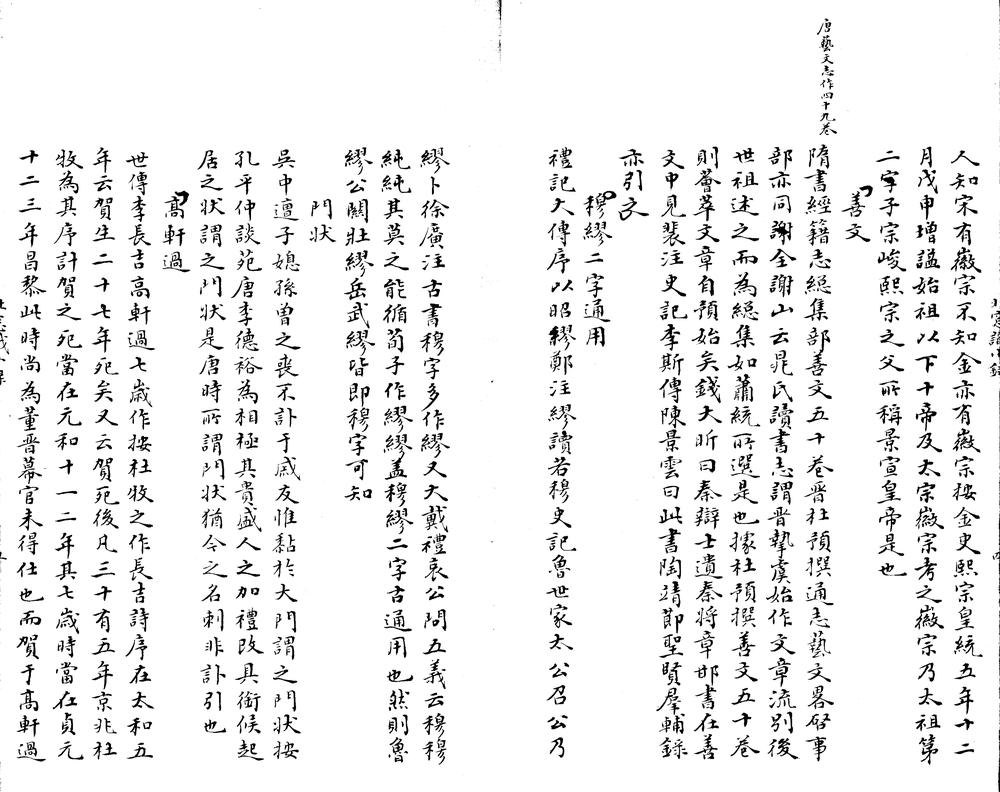 人知宋有徽宗不知金亦有徽宗按金史熙宗皇統五年十二
月戊申增謚始祖以下十帝及太宗徽宗考之徽宗乃太祖第
二字子宗峻熙宗之父所稱景宣皇帝是也
善文
唐藝文志作四十九卷
隋書經籍志總集部善文五十卷晉杜預撰通志藝文畧
部亦同謝全謝山云晁氏讀書志謂晉摯虞始作文章流別後
世祖述之而為總集如蕭統所選是也據杜預撰善文五十卷
則薈萃文章自預始矣錢大昕曰秦辯士遺秦將章邯書在善
文中見裴注史記李斯傳陳景雲曰此書陶靖節聖賢羣輔錄
亦引之
穆繆二字通用
禮記大傳序以昭繆鄭注繆讀若穆史記魯世家太公召公乃
繆卜徐廣注古書穆字多作繆又大戴禮哀公問五義云穆穆
純純其莫之能循荀子作繆繆盖穆繆二字古通用也然則魯
繆公關壯繆岳武繆皆即穆字可知
門狀
吳中遭子媳孫曾之喪不訃于戚友惟黏於大門謂之門狀按
孔平仲談苑唐李德裕為相極其貴盛人之加禮改具銜候起
居之狀謂之門狀是唐時所謂門狀猶今之名刺非訃引也
高軒過
世傳李長吉高軒過七歲作按杜牧之作長吉詩序在太和五
年云賀生二十七年死矣又云賀死後凡三十有五年京兆杜
牧為其序計賀之死當在元和十一二年其七歲時當在貞元
十二三年昌黎此時尚為董晉幕官未得仕也而賀于高軒過